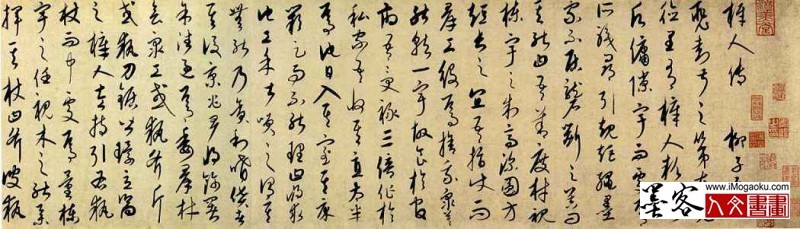 梓人傳 柳子
裴封叔之第在光
德里有梓人款
門傭隟宇而處
所職尋引規矩繩墨
家不居礱斲之器問
其能曰吾善度材視
棟宇之制高深圓方
短長之宜吾指使而
群工役焉捨我衆莫
能就一宇故食於官
府吾受祿三倍作於
私家吾收其直太半
焉他日入其室其床
闕足而不能理曰將求
他工余甚笑之謂其
無能乃貪利嗜貨者
其後京兆尹將飾官署
余往過焉委群材
會衆工或執斧斤
或執刀鋸皆環立嚮
之梓人左持引右執
杖而中處焉量棟
宇之任視木之能舉
揮其杖曰斧彼執
墨客
www.iMogaoku.com
人文書畫